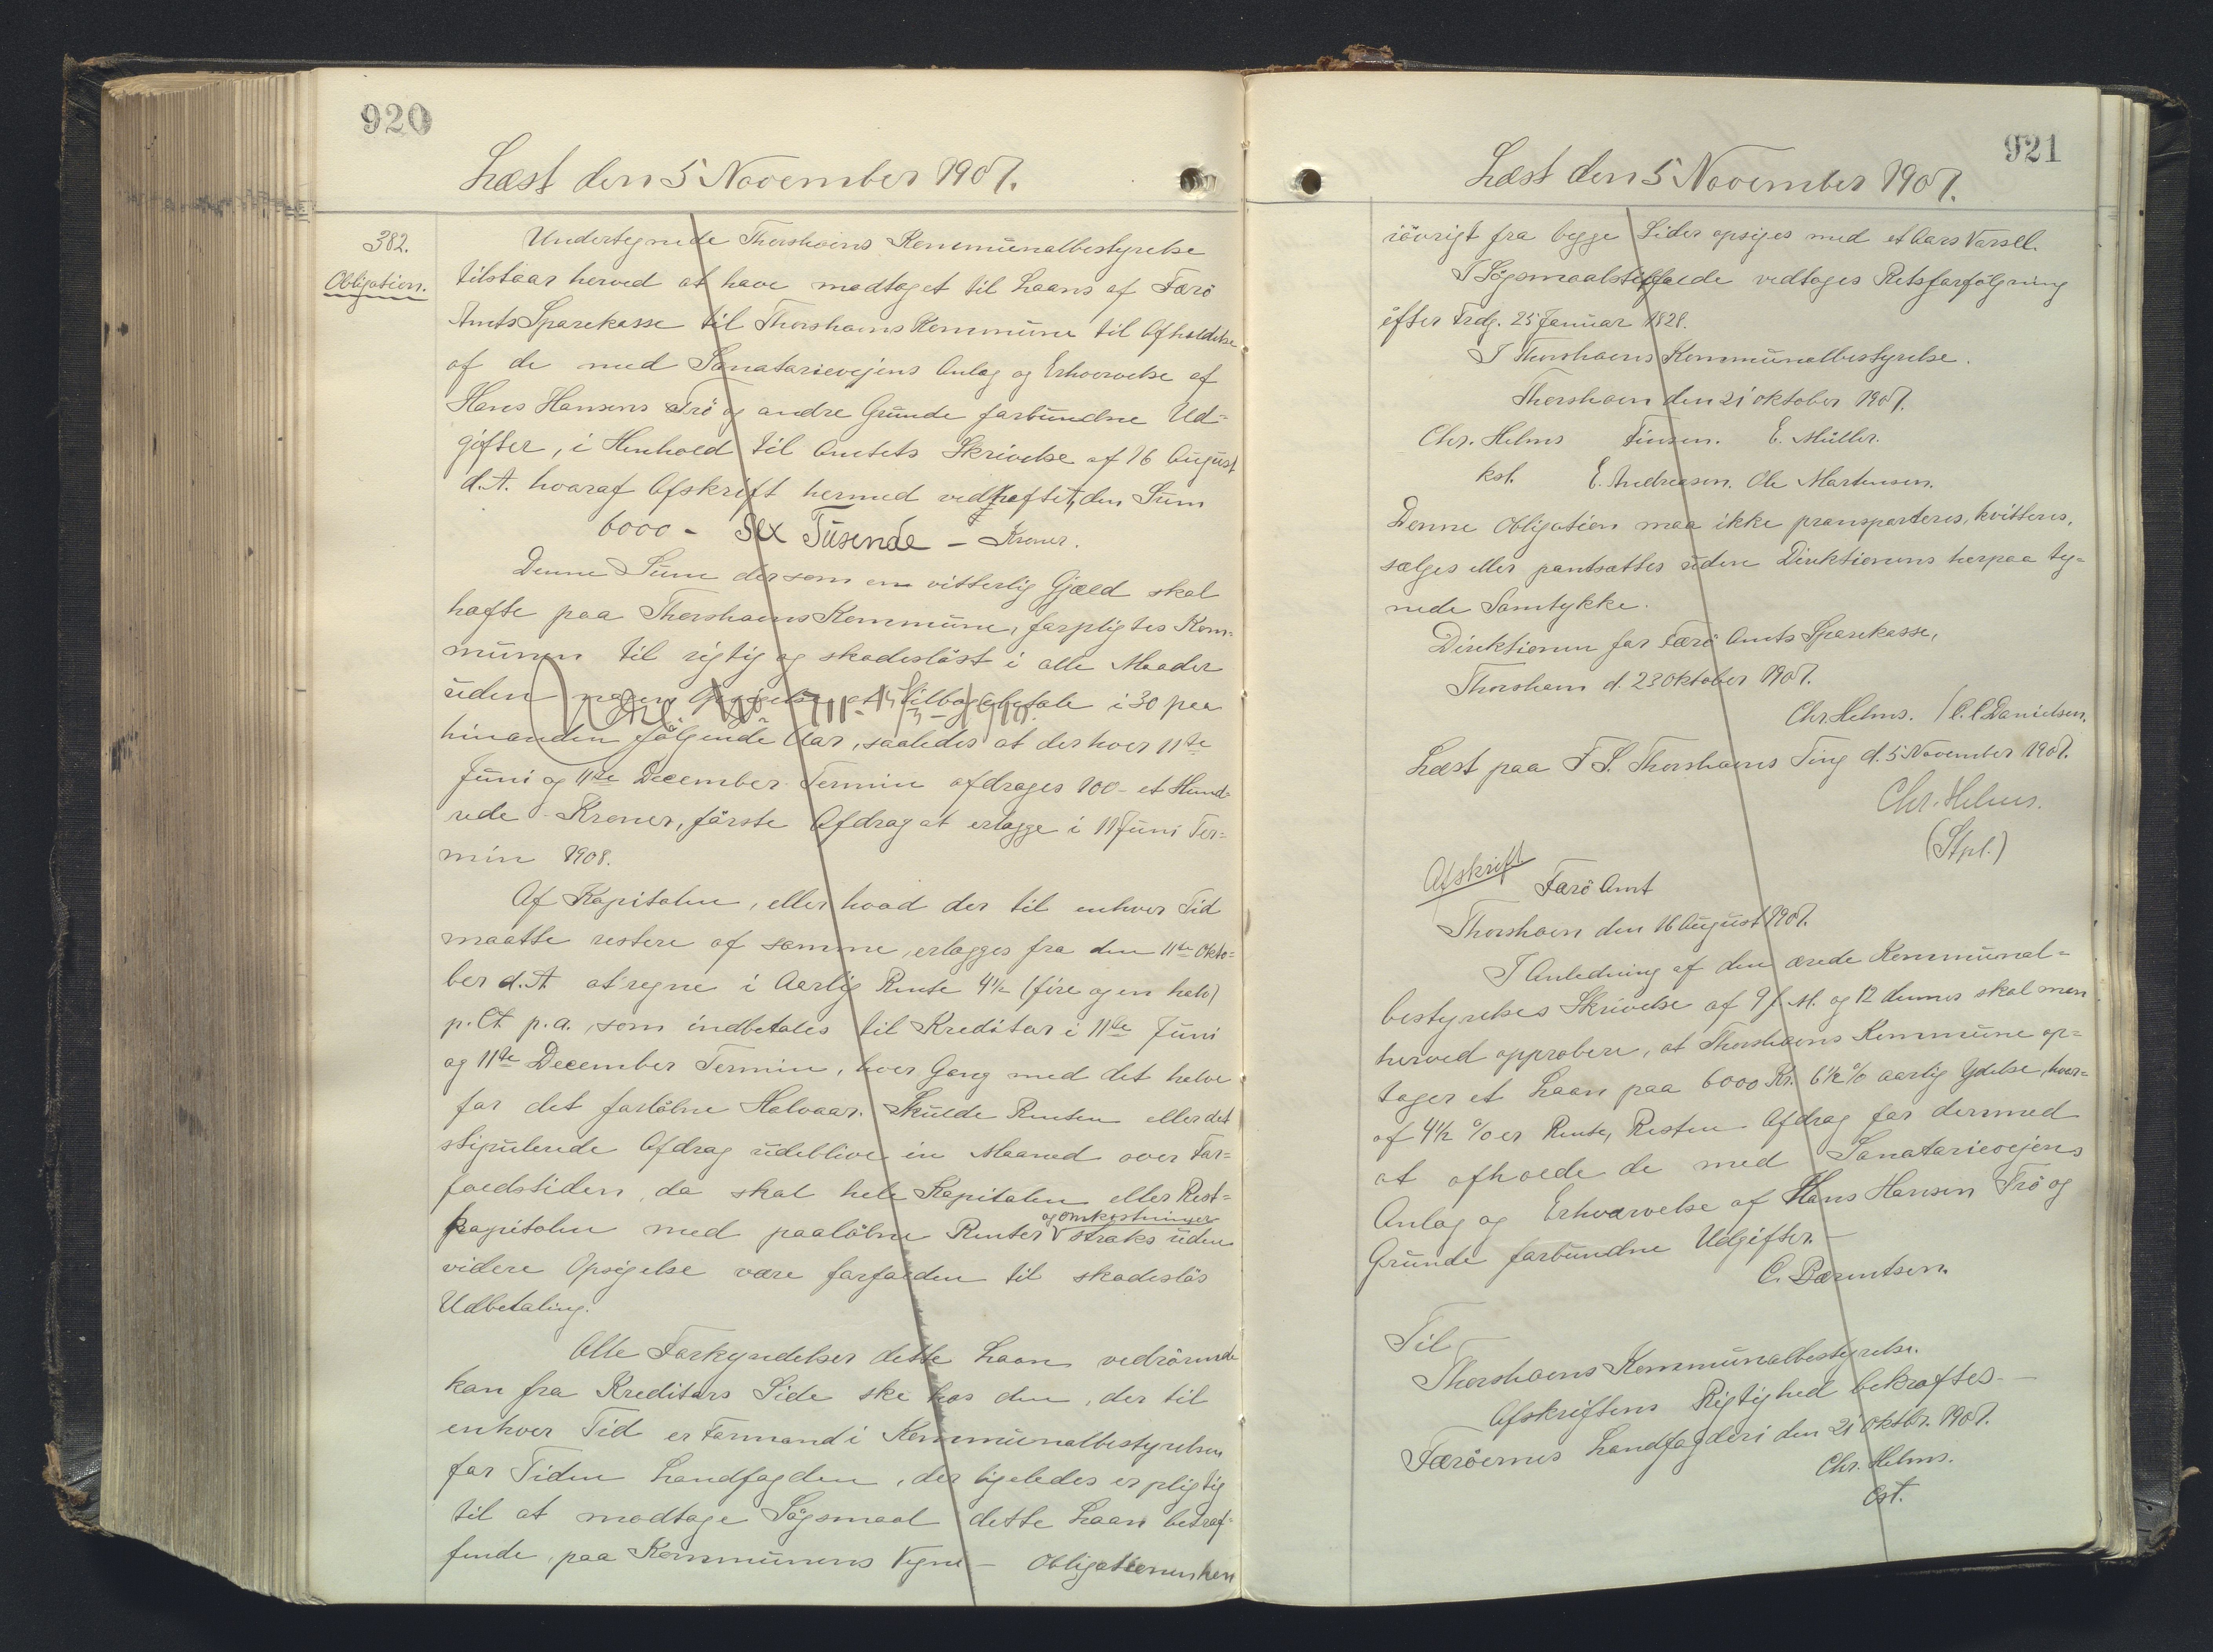 920
Læst den 5 November 1907.
382.
Obligation.
Undertegnede Thorshavns Kommunalbestyrelse
tilstaar herved at have modtaget til Laans af Færö
Amts Sparekasse til Thorshavns Kommune til Afholdelse
af de med Sanatorievejens Anlæg og Erhvervelse af
Hans Hansens Trö og andre Grunde forbundne Ud=
gifter, i Henhold til Amtets Skrivelse af 16 August
d.A. hvoraf Afskrift hermed vedheftet, den Sum
6000 - Sex Tusende - Kroner.
Denne Sum der som en vitterlig Gjæld skal
hæfte paa Thorshavns Kommune, forpligtes Kom=
munen til rigtig og skadesløst i alle Maader
uden nogen Opsigelse at tilbagebetale i 30 paa
hinanden fölgende Aar, saaledes at der hver 11te
Juni og 11te December Termin afdrages 100 - et Hund=
rede - Kroner, förste Afdrag at erlægge i 11 Juni Ter=
min 1908.
Af Kapitalen, eller hvad der til enhver Tid
maatte restere af samme, erlægges fra den 11te Okto=
ber d.A. at regne i Aarlig Rente 4½ (fire og en halv)
p.Ct. p.a., som indbetales til Kreditor i 11te Juni
og 11te December Termin, hver Gang med det halve
for det forlöbne Halvaar. Skulde Renten eller det
stipulerede Afdrag udeblive en Maaned over For=
faldstiden, da skal hele Kapitalen eller Rest=
kapitalen med paalöbne Renter og Omkostninger straks uden
videre Opsigelse være forfalden til skadeslös
Udbetaling.
Alle Forkyndelser dette Laan vedrörende
kan fra Kreditors Side ske hos den, der til
enhver Tid er Formand i Kommunalbestyrelsen
for Tiden Landfogden, der ligeledes er pligtig
til at modtage Sögsmaal dette Laan betræf=
fende, paa Kommunens Vegne - Obligationen kan
921
Læst den 5 November 1907.
iövrigt fra begge Sider opsiges med et Aars Varsel.
I Sögsmaalstilfælde vedtages Retsforfölgning
efter Frdg. 25 Januar 1828.
I Thorshavns Kommunalbestyrelse.
Thorshavn den 21 oktober 1907.
Chr. Helms Finsen. E. Müller.
kst. E. Andreasen. Ole Martensen.
Denne Obligation maa ikke transporteres, kvitteres,
sælges eller pantsættes uden Direktionens herpaa teg=
nede Samtykke.
Direktionen for Færö Amts Sparekasse,
Thorshavn d. 23 Oktober 1907.
Chr. Helms. / C. C. Danielsen.
Læst paa F. S. Thorshavns Ting d. 5 November 1907.
Chr. Helms.
(Stpl.)
Afskrift
Færö Amt
Thorshavn den 16 August 1907.
I Anledning af den ærede Kommunal=
bestyrelses Skrivelse af 9 f. M. og 12 dennes skal man
herved approbere, at Thorshavns Kommune op=
tager et Laan paa 6000 Kr. 6½ % aarlig Ydelse, hvor=
af 4½ % er Rente, Resten Afdrag for dermed
at afholde de med Sanatorievejens
Anlæg og Erhvervelse af Hans Hansen Trö og
Grunde forbundne Udgifter.
C. Bærentsen.
Til
Thorshavns Kommunalbestyrelse.
Afskriftens Rigtighed bekræftes. -
Færöernes Landfogderi den 21 Oktbr. 1907.
Chr. Helms.
cst.